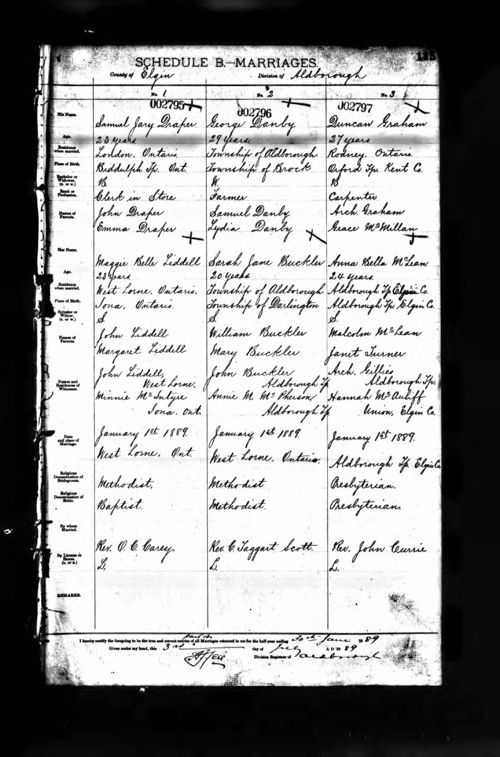 135
SCHEDULE B.—MARRIAGES.
County of Elgin Division of Aldborough
No. 1 No. 2 No. 3
002795 002796 002797
His Name. Samuel Jary Draper George Danby Duncan Graham
Age. 23 years 29 years 27 years
Residence when married. London, Ontario Township of Aldborough Rodney, Ontario
Place of Birth. Biddulph Tp. Ont. Township of Brock Oxford Tp. Kent Co.
Bachelor or Widower (B. or W.) B W. B
Rank or Profession. Clerk in Store Farmer Carpenter
Names of Parents. John Draper Samuel Danby Arch. Graham
Emma Draper Lydia Danby Grace McMillan
Her Name. Maggie Belle Liddell Sarah Jane Buckler Anna Bella McLean
Age. 23 years 20 years 24 years
Residence when married. West Lorne, Ontario. Township of Aldborough Aldborough Tp. Elgin Co.
Place of Birth. Iona, Ontario Township of Darlington Aldborough Tp. Elgin Co.
Spinster or Widow (S. or W.) S S. S.
Names of Parents. John Liddell William Buckler Malcolm McLean
Margaret Liddell Mary Buckler Janet Turner
Names and Residences of Witnesses. John Liddell, John Buckler Arch. Gillies
West Lorne. Aldborough Tp Aldborough Tp.
Minnie McIntyre Annie M. McPherson Hannah McAuliff
Iona. Ont Aldborough Tp Union, Elgin Co
Date and place of Marriage. January 1st 1889. January 1st 1889 January 1st 1889.
West Lorne, Ont West Lorne, Ontario. Aldborough Tp. Elgin Co
Religious Denomination of Bridegroom. Methodist. Methodist Presbyterian.
Religious Denomination of Bride. Baptist. Methodist. Presbyterian.
By whom Married. Rev. O. C. Carey. Rev. C. Taggart Scott. Rev. John Currie
By License or Banns (L. or B.) L. L. L.
REMARKS.
I hereby certify the foregoing to be the true and correct entries of all Marriages returned to me for the half-year ending 30th June 1889
Given under my hand, this 3rd day of July A.D. 1889
Division Registrar of Aldborough